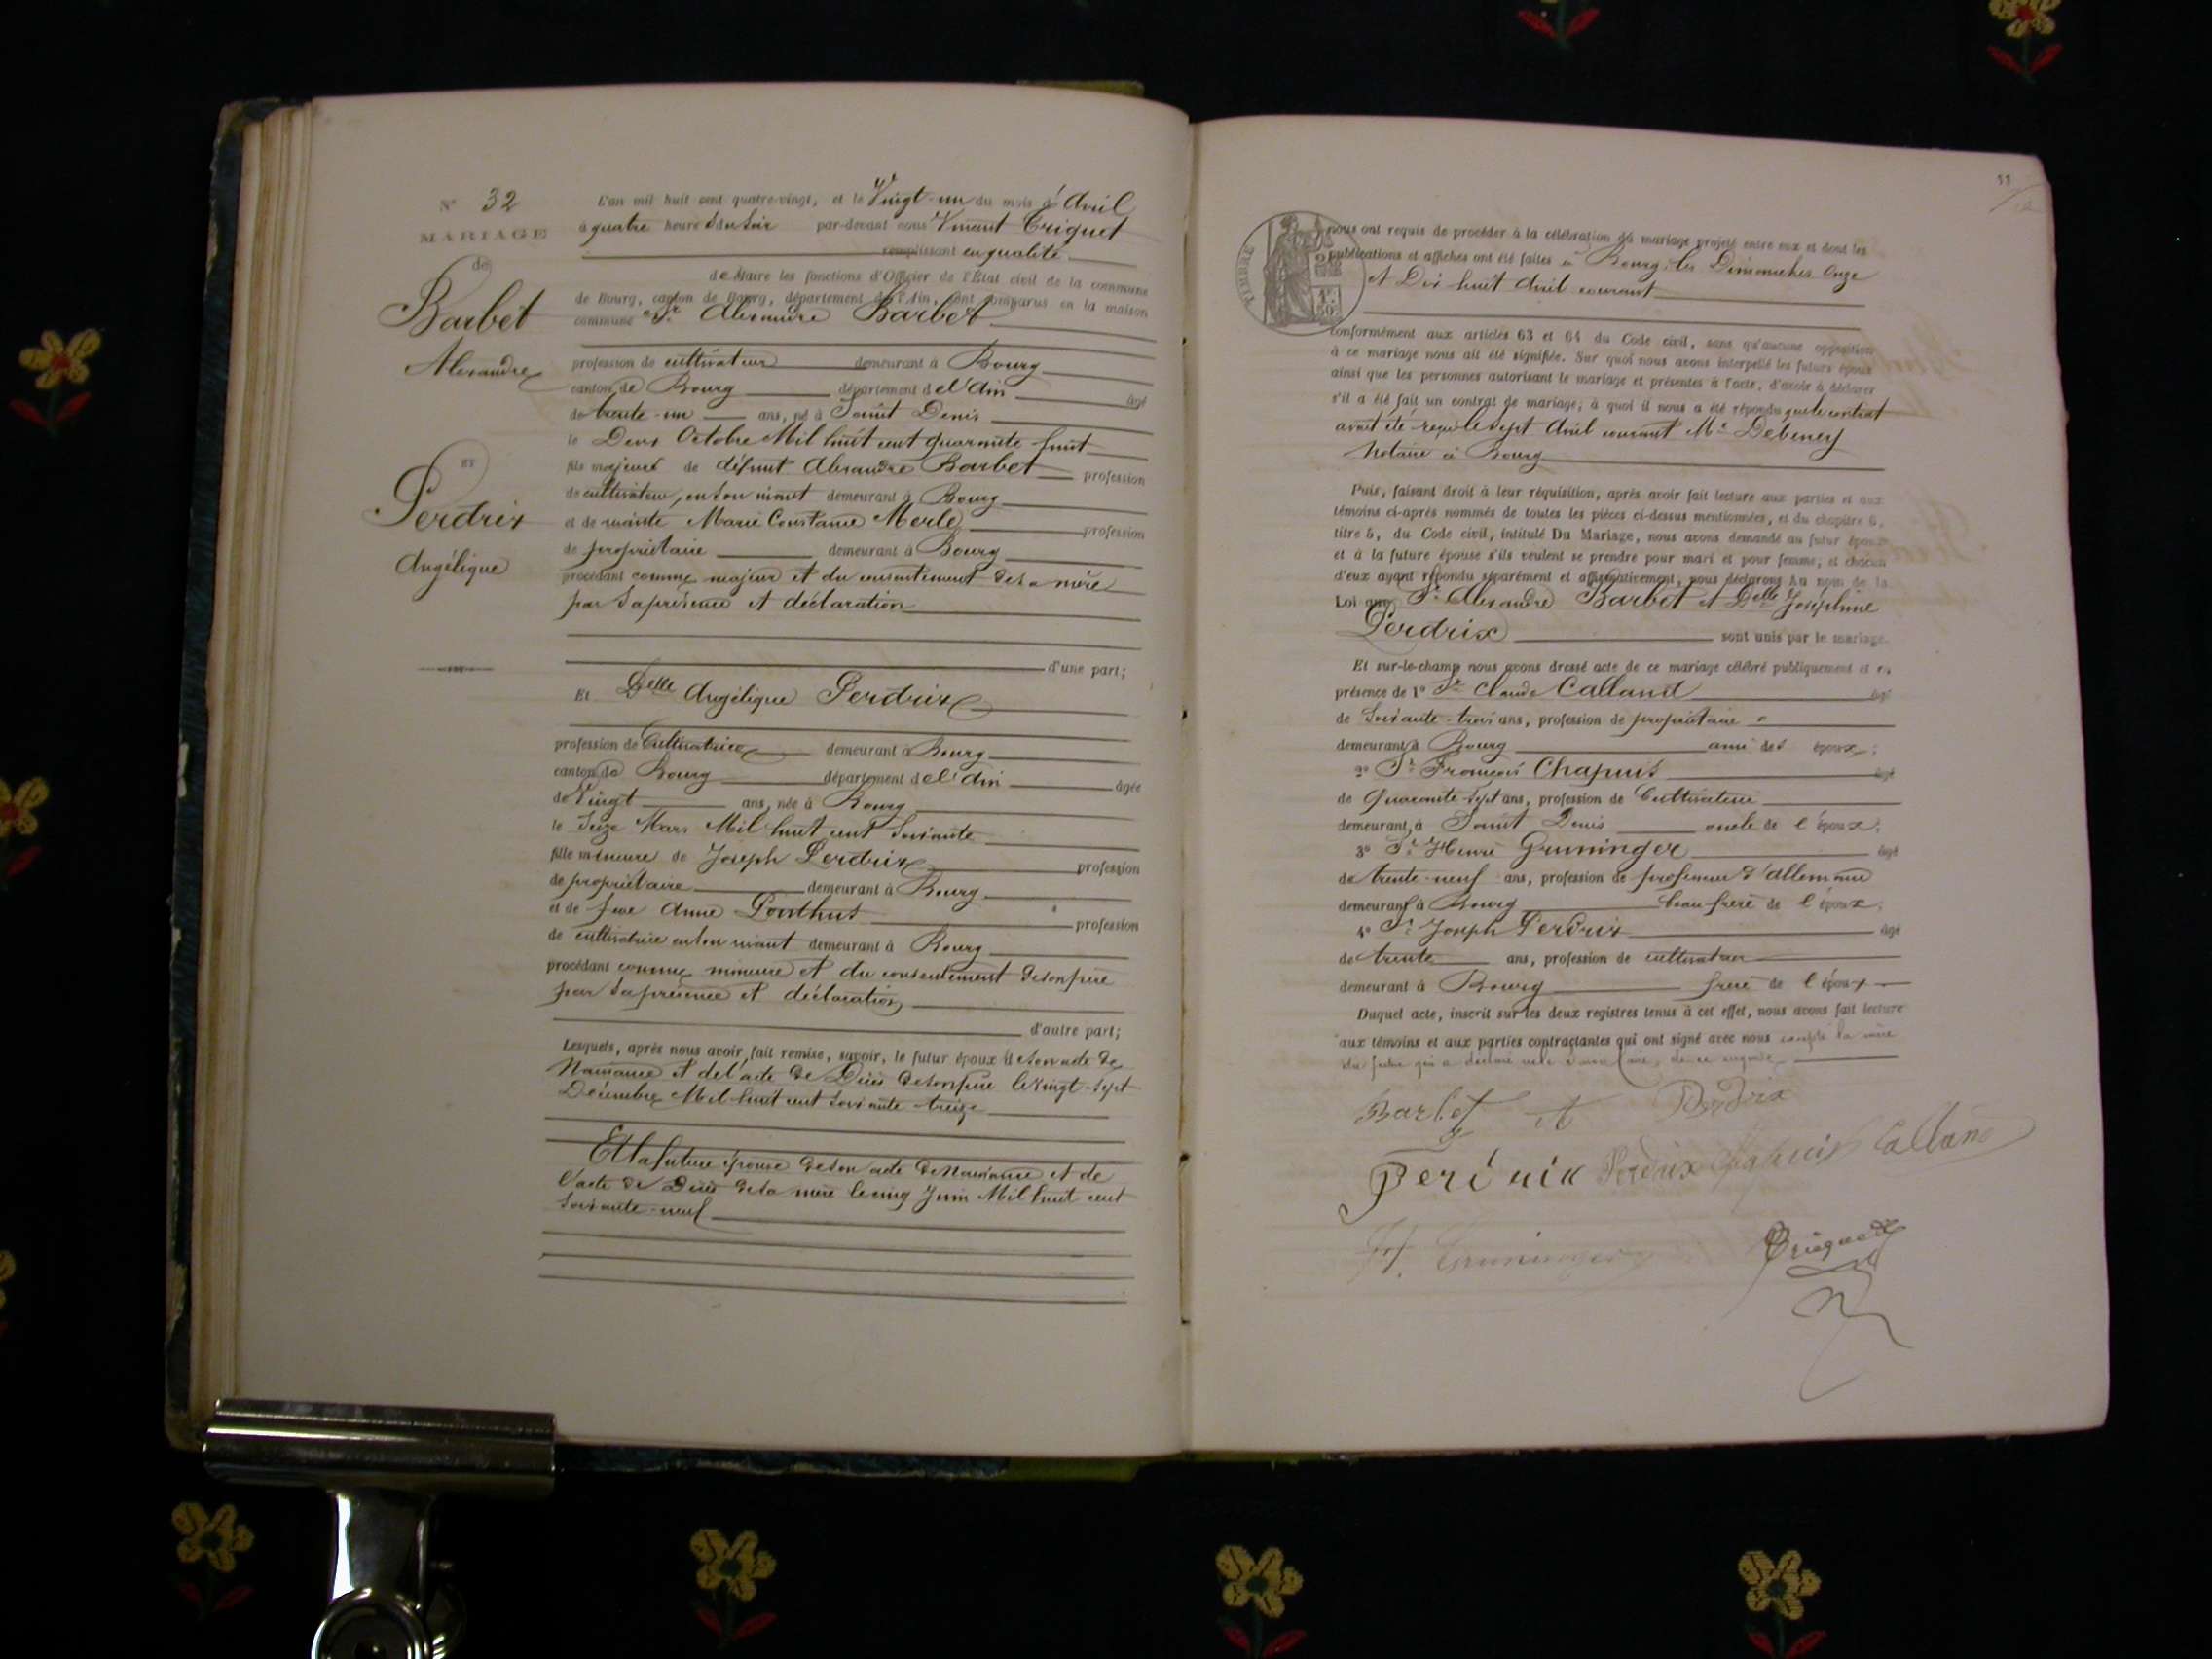 N° 32
MARIAGE
de
Barbet
Alexandre
ET
Perdrix
Angélique
L'an mil huit cent quatre-vingt, et le Vingt-un du mois d'Avril
à quatre heures du Soir par-devant nous Vincent Triquet
remplissant en qualité
de Maire les fonctions d'Officier de l'État civil de la commune
de Bourg, canton de Bourg, département de l'Ain, sont comparus en la maison
commune Sr Alexandre Barbet
profession de cultivateur demeurant à Bourg
canton de Bourg département de l'Ain âgé
de trente-un ans, né à Saint Denis
le Deux Octobre Mil huit cent quarante huit
fils majeur de défunt Alexandre Barbet profession
de cultivateur, en son vivant demeurant à Bourg
et de vivante Marie Constance Merle profession
de propriétaire demeurant à Bourg
procédant comme majeur et du consentement de sa mère
par sa présence et déclaration
d'une part;
Et Delle Angélique Perdrix
profession de Cultivatrice demeurant à Bourg
canton de Bourg département de l'Ain âgée
de Vingt ans, née à Bourg
le Seize Mars Mil huit cent Soixante
fille mineure de Joseph Perdrix profession
de propriétaire demeurant à Bourg
et de feue Anne Ponthus profession
de cultivatrice en son vivant demeurant à Bourg
procédant comme mineure et du consentement de son père
par sa présence et déclaration
d'autre part;
Lesquels, après nous avoir fait remise, savoir, le futur époux de son acte de
Naissance et de l'acte de Décès de son père le Vingt-sept
Décembre Mil huit cent soixante treize
Et la future épouse de son acte de Naissance et de
l'acte de Décès de sa mère le cinq Juin Mil huit cent
soixante-neuf
55
TIMBRE
nous ont requis de procéder à la célébration du mariage projeté entre eux et dont les
publications et affiches ont été faites à Bourg, les Dimanches Onze
et Dix huit Avril courant
conformément aux articles 63 et 64 du Code civil, sans qu'aucune opposition
à ce mariage nous ait été signifiée. Sur quoi nous avons interpellé les futurs époux
ainsi que les personnes autorisant le mariage et présentes à l'acte, d'avoir à déclarer
s'il a été fait un contrat de mariage; à quoi il nous a été répondu que le contrat
avait été reçu le sept Avril courant Me Debeney
Notaire à Bourg
Puis, faisant droit à leur réquisition, après avoir fait lecture aux parties et aux
témoins ci-après nommés de toutes les pièces ci-dessus mentionnées, et du chapitre 6,
titre 5, du Code civil, intitulé Du Mariage, nous avons demandé au futur époux
et à la future épouse s'ils veulent se prendre pour mari et pour femme; et chacun
d'eux ayant répondu séparément et affirmativement, nous déclarons Au nom de la
Loi que Sr Alexandre Barbet et Delle Joséphine
Perdrix sont unis par le mariage.
Et sur-le-champ nous avons dressé acte de ce mariage célébré publiquement et en
présence de 1° Sr Claude Calland âgé
de Soixante-trois ans, profession de propriétaire
demeurant à Bourg ami des époux;
2° Sr François Chapuis âgé
de Quarante-sept ans, profession de Cultivateur
demeurant à Saint Denis oncle de l'époux;
3° Sr Henri Gruninger âgé
de trente-neuf ans, profession de professeur d'allemand
demeurant à Bourg beau frère de l'époux;
4° Sr Joseph Perdrix âgé
de trente ans, profession de cultivateur
demeurant à Bourg frère de l'épouse
Duquel acte, inscrit sur les deux registres tenus à cet effet, nous avons fait lecture
aux témoins et aux parties contractantes qui ont signé avec nous excepté la mère
du futur qui a déclaré ne le savoir faire, de ce enquise
Barbet A Perdrix
Perdrix Perdrix Chapuis Calland
H. Gruninger Triquet